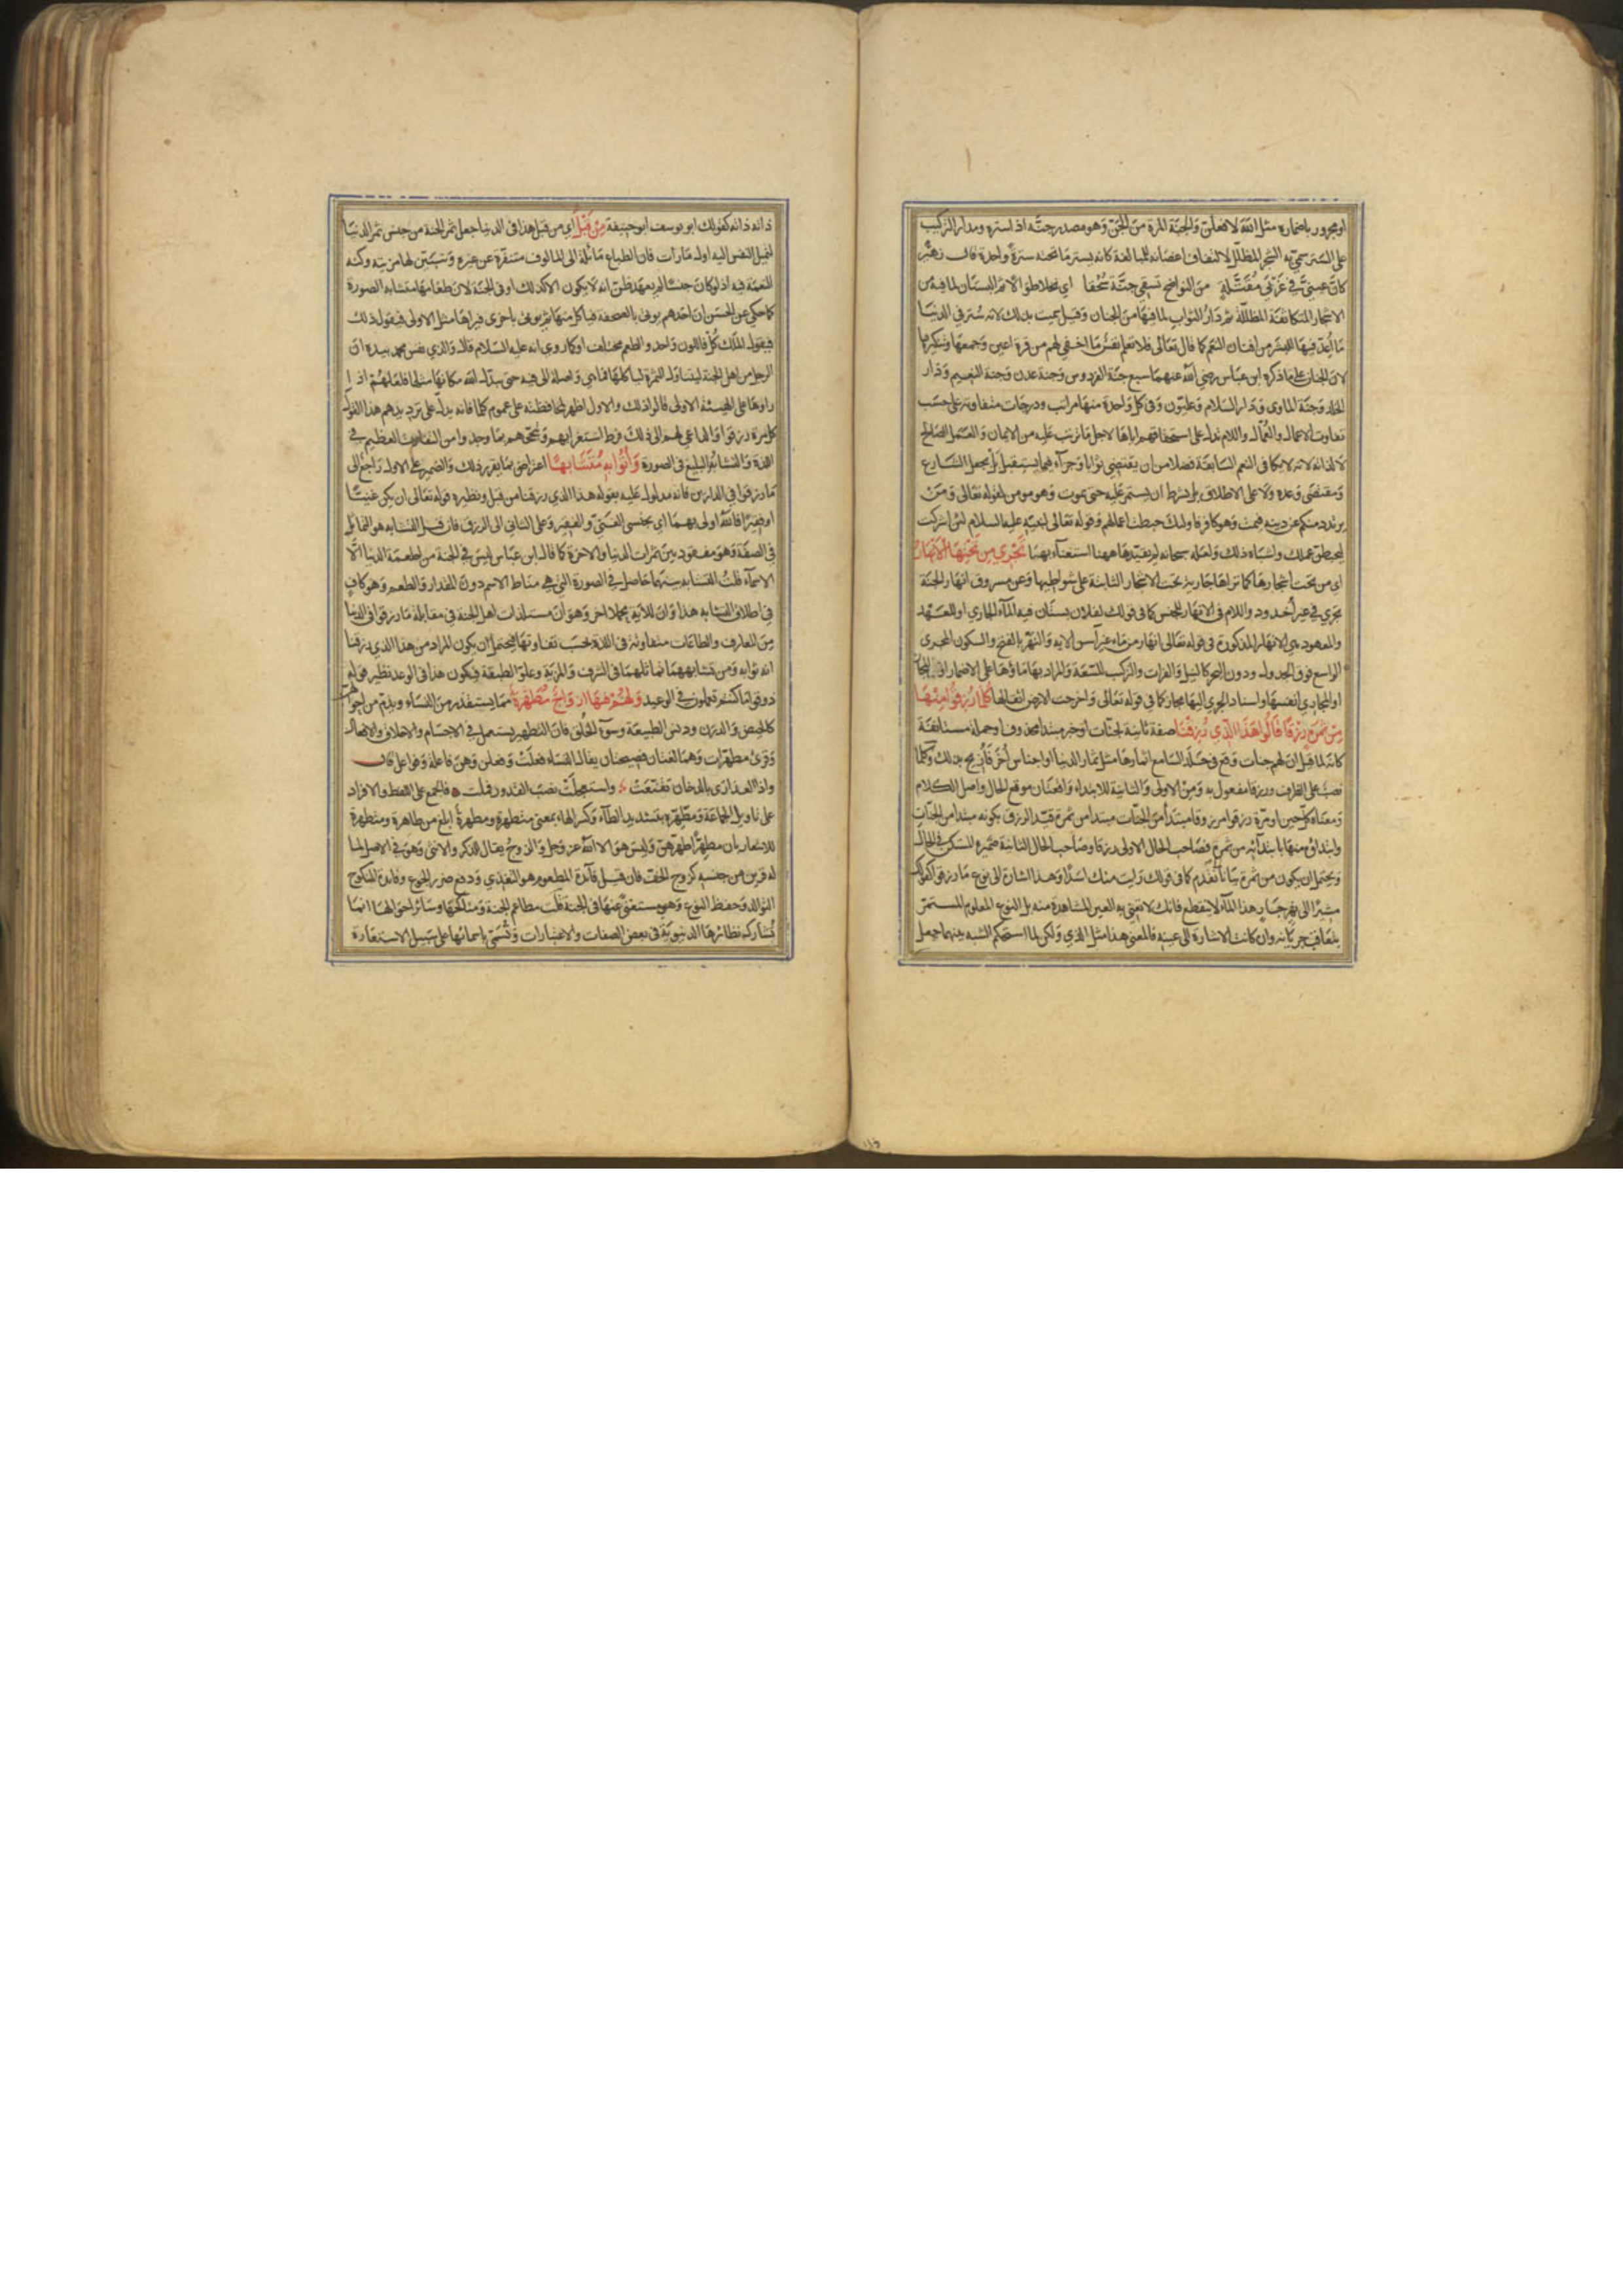 او مجرور باضماره مثل الله لافعلن والجنة المرة من الجن وهو مصدر جنه اذا ستره ومدار التركيب
على الستر سمي به الشجر المظلل لالتفاف اغصانه للمبالغة كانه يستر ما تحته سترة واحدة قال زهير
كان عيني في غربي مقتلة من النواضح تسقي جنة سحقا اي نخلا طوالا ثم البستان لما فيه من
الاشجار المتكاثفة المظللة ثم دار الثواب لما فيها من الجنان وقيل سميت بذلك لانه ستر في الدنيا
ما اعد فيها للبشر من افنان النعم كما قال تعالى فلا تعلم نفس ما اخفي لهم من قرة اعين وجمعها وتنكيرها
لان الجنان على ما ذكره ابن عباس رضي الله عنهما سبع جنة الفردوس وجنة عدن وجنة النعيم ودار
الخلد وجنة الماوى ودار السلام وعليون وفي كل واحدة منها مراتب ودرجات متفاوتة على حسب
تفاوت الاعمال والعمال واللام تدل على استحقاقهم اياها لاجل ما ترتب عليه من الايمان والعمل الصالح
لا لذاته لانه لا يكافي النعم السابقة فضلا من ان يقتضي ثوابا وجزاء فيما يستقبل بل بجعل الشارع
ومقتضى وعده ولا على الاطلاق بل بشرط ان يستمر عليه حتى يموت وهو مومن لقوله تعالى ومن
يرتدد منكم عن دينه فيمت وهو كافر فاوليك حبطت اعمالهم وقوله تعالى لنبيه عليه السلام لئن اشركت
ليحبطن عملك واشباه ذلك ولعله سبحانه لم يقيدها ههنا استغناء بهما تجري من تحتها الانهار
اي من تحت اشجارها كما تراها جارية تحت الاشجار النابتة على شواطيها وعن مسروق انهار الجنة
تجري في غير اخدود واللام في الانهار للجنس كما في قولك لفلان بستان فيه الماء الجاري او للعهد
والمعهود هي الانهار المذكورة في قوله تعالى انهار من ماء غير اسن الاية والنهر بالفتح والسكون المجرى
الواسع فوق الجدول ودون البحر كالنيل والفرات والتركيب للسعة والمراد بها ماؤها على الاضمار او المجاز
او المجاري انفسها واسناد الجري اليها مجاز كما في قوله تعالى واخرجت الارض اثقالها كلما رزقوا منها
من ثمرة رزقا قالوا هذا الذي رزقنا صفة ثانية لجنات او خبر مبتدا محذوف او جملة مستانفة
كانه لما قيل ان لهم جنات وقع في خلد السامع اثمارها مثل ثمار الدنيا او اجناس اخر فازيح بذلك وكلما
نصب على الظرف ورزقا مفعول به ومن الاولى والثانية للابتداء واقعتان موقع الحال واصل الكلام
ومعناه كل حين او مرة رزقوا مرزوقا مبتدا من الجنات مبتدا من ثمرة قيد الرزق بكونه مبتدا من الجنات
وابتداؤه منها بابتدائه من ثمرة فصاحب الحال الاولى رزقا وصاحب الحال الثانية ضميره المستكن في الحال
ويحتمل ان يكون من ثمرة بيانا تقدم كما في قولك رايت منك اسدا وهذا اشارة الى نوع ما رزقوا كقولك
مشيرا الى نهر جار هذا الماء لا ينقطع فانك لا تعني به العين المشاهدة منه بل النوع المعلوم المستمر
بتعاقب جريانه وان كانت الاشارة الى عينه فالمعنى هذا مثل الذي ولكن لما استحكم الشبه بينهما جعل
ذاته ذاته كقولك ابو يوسف ابو حنيفة من قبل اي من قبل هذا في الدنيا جعل ثمر الجنة من جنس ثمر الدنيا
لتميل النفس اليه اول ما رات فان الطباع مائلة الى المالوف متنفرة عن غيره وتتبين لها مزيته وكنه
النعمة فيه اذ لو كان جنسا لم يعهد ظن انه لا يكون الا كذلك او في الجنة لان طعامها متشابه الصورة
كما حكي عن الحسن ان احدهم يوتى بالصحفة فياكل منها ثم يوتى باخرى فيراها مثل الاولى فيقول ذلك
فيقول الملك كل فاللون واحد والطعم مختلف او كما روي انه عليه السلام قال والذي نفس محمد بيده ان
الرجل من اهل الجنة ليتناول الثمرة لياكلها فما هي واصلة الى فيه حتى يبدل الله مكانها مثلها فلعلهم اذا
راوها على الهيئة الاولى قالوا ذلك والاول اظهر لمحافظته على عموم كلما فانه يدل على ترديدهم هذا القول
كل مرة رزقوا والداعي لهم الى ذلك فرط استغرابهم وتبجحهم بما وجدوا من التفاوت العظيم في
اللذة والتشابه البليغ في الصورة واتوا به متشابها اعتراض بما يقرر ذلك والضمير على الاول راجع الى
ما رزقوا في الدارين فانه مدلول عليه بقوله هذا الذي رزقنا من قبل ونظيره قوله تعالى ان يكن غنيا
او فقيرا فالله اولى بهما اي بجنسي الغني والفقير وعلى الثاني الى الرزق فان قيل التشابه هو التماثل
في الصفة وهو مفقود بين ثمرات الدنيا والاخرة كما قال ابن عباس ليس في الجنة من اطعمة الدنيا الا
الاسماء قلت التشابه بينهما حاصل في الصورة التي هي مناط الاسم دون المقدار والطعم وهو كاف
في اطلاق التشابه هذا وان للاية محملا اخر وهو ان مستلذات اهل الجنة في مقابلة ما رزقوا في الدنيا
من المعارف والطاعات متفاوتة في اللذة بحسب تفاوتها فيحتمل ان يكون المراد من هذا الذي رزقنا
انه ثوابه ومن تشابههما تماثلهما في الشرف والمزية وعلو الطبقة فيكون هذا في الوعد نظير قوله
ذوقوا ما كنتم تعملون في الوعيد ولهم فيها ازواج مطهرة مما يستقذر من النساء ويذم من احوالهن
كالحيض والدرن ودنس الطبيعة وسوء الخلق فان التطهير يستعمل في الاجسام والاخلاق والافعال
وقرئ مطهرات وهما لغتان فصيحتان يقال النساء فعلت وفعلن وهن فاعلة وفواعل قال
واذا العذارى بالدخان تقنعت واستعجلت نصب القدور فملت فالجمع على اللفظ والافراد
على تاويل الجماعة ومطهرة بتشديد الطاء وكسر الهاء بمعنى متطهرة ومطهرة ابلغ من طاهرة ومتطهرة
للاشعار بان مطهرا طهرهن وليس هو الا الله عز وجل والزوج يقال للذكر والانثى وهو في الاصل لما
له قرين من جنسه كزوج الخف فان قيل فائدة المطعوم هو التغذي ودفع ضرر الجوع وفائدة المنكوح
التوالد وحفظ النوع وهو مستغنى عنها في الجنة قلت مطاعم الجنة ومناكحها وسائر احوالها انما
تشارك نظائرها الدنيوية في بعض الصفات والاعتبارات وتسمى باسمائها على سبيل الاستعارة